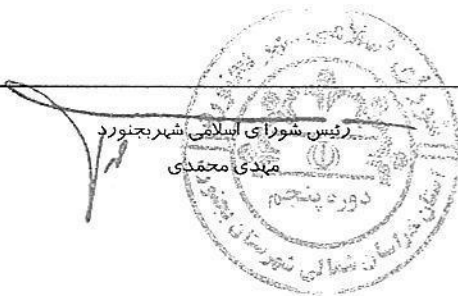 رئیس شورای اسلامی شهربجنورد
مهدی محمّدی
دوره پنجم
استان خراسان شمالی شهرستان بجنورد